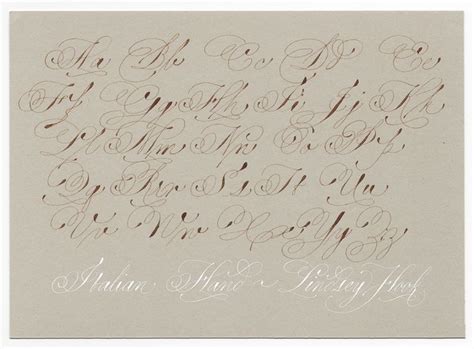 Aa Bb Cc Dd Ee
Ff Gg Hh Ii Jj Kk
Ll Mm Nn Oo Pp
Qq Rr Ss Tt Uu
Vv Ww Xx Yy Zz
Italian Hand Lindsey Hook